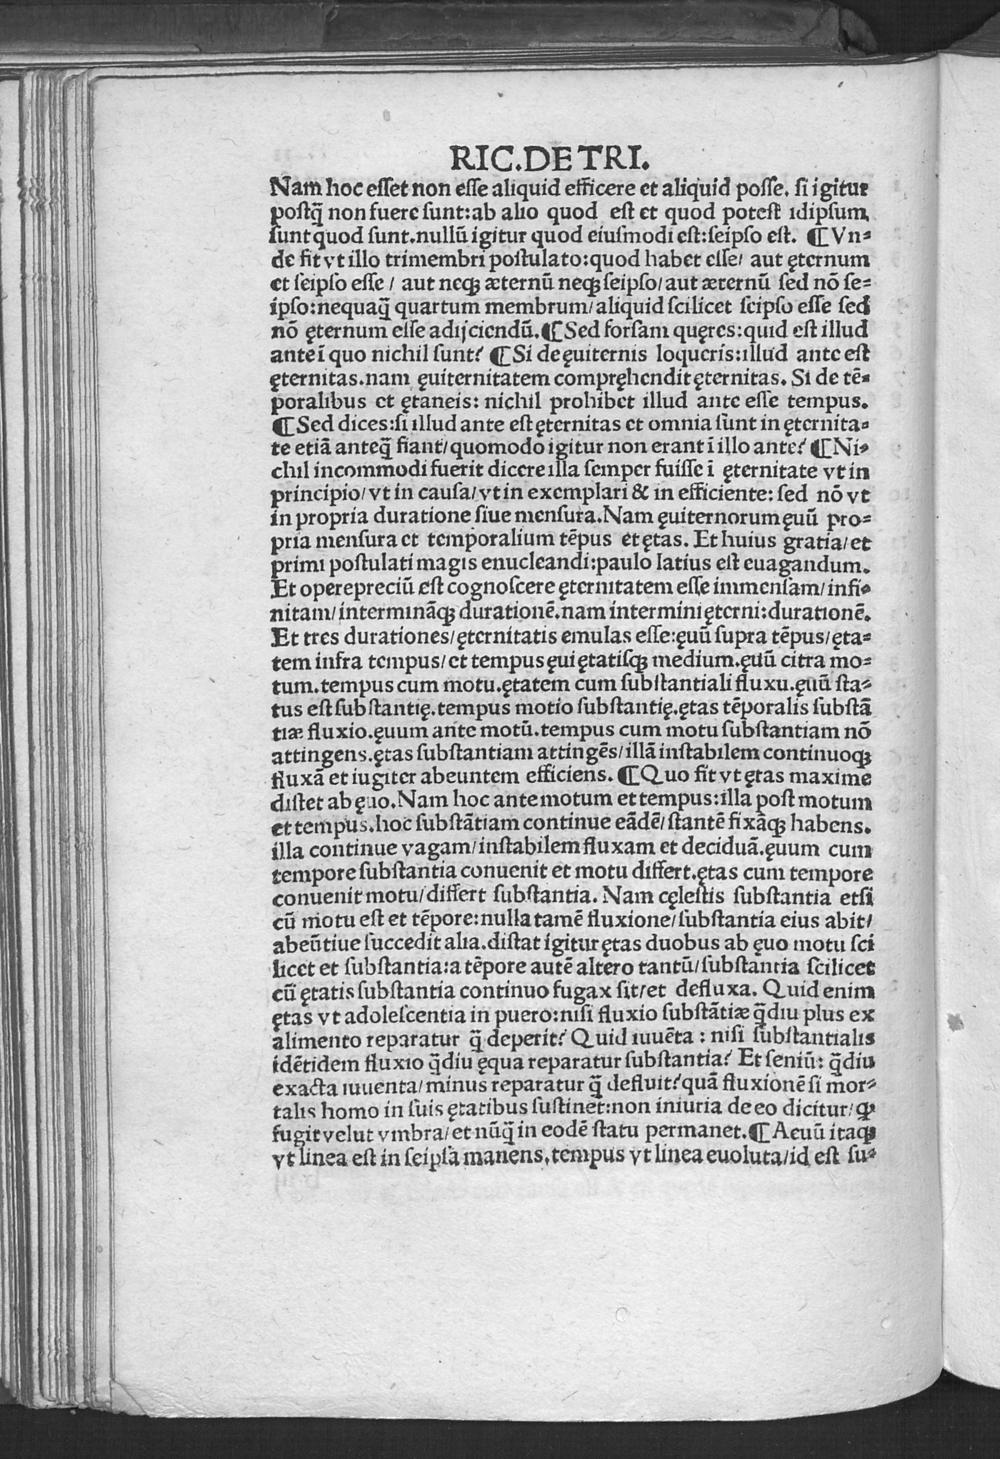 RIC.DE TRI.
Nam hoc eſſet non eſſe aliquid efficere et aliquid poſſe. ſi igitur
poſtq̃ non fuere ſunt:ab alio quod est et quod poteſt idipſum
ſunt quod ſunt.nullũ igitur quod eiuſmodi eſt:ſeipſo eſt. ¶ Vn⸗
de fit vt illo trimembri poſtulato:quod habet eſſe/ aut ęternum
et ſeipſo eſſe / aut neqꝫ æternũ neqꝫ ſeipſo/aut æternũ ſed nõ ſe⸗
ipſo:nequaq̃ quartum membrum/aliquid ſcilicet ſeipſo eſſe ſed
nõ ęternum eſſe adijciendũ.¶ Sed forſam quęres:quid eſt illud
ante ĩ quo nichil ſunt? ¶ Si de ęuiternis loqueris:illud ante eſt
ęternitas.nam ęuiternitatem compręhendit ęternitas. Si de tẽ⸗
poralibus et ętaneis: nichil prohibet illud ante eſſe tempus.
¶ Sed dices:ſi illud ante eſt ęternitas et omnia ſunt in ęternita⸗
te etiã anteq̃ fiant/quomodo igitur non erant ĩ illo ante? ¶ Ni⸗
chil incommodi fuerit dicere illa ſemper fuiſſe ĩ ęternitate vt in
principio/vt in cauſa/vt in exemplari & in efficiente: ſed nõ vt
in propria duratione ſiue menſura.Nam ęuiternorum ęuũ pro⸗
pria menſura et temporalium tẽpus et ętas. Et huius gratia/et
primi poſtulati magis enucleandi:paulo latius eſt euagandum.
Et operepreciũ eſt cognoſcere ęternitatem eſſe immenſam/infi⸗
nitam/interminãqꝫ durationẽ.nam intermini ęterni:durationẽ.
Et tres durationes/ęternitatis emulas eſſe:ęuũ ſupra tẽpus/ęta⸗
tem infra tempus/et tempus ęui ętatiſqꝫ medium.ęuũ citra mo⸗
tum.tempus cum motu.ętatem cum ſubſtantiali fluxu.ęuũ ſta⸗
tus eſt ſubſtantię.tempus motio ſubſtantię.ętas tẽporalis ſubſtã
tiæ fluxio.ęuum ante motũ.tempus cum motu ſubſtantiam nõ
attingens.ętas ſubſtantiam attingẽs/illã inſtabilem continuoqꝫ
fluxã et iugiter abeuntem efficiens. ¶ Quo fit vt ętas maxime
diſtet ab ęuo.Nam hoc ante motum et tempus:illa poſt motum
et tempus.hoc ſubſtãtiam continue eãdẽ/ſtantẽ fixãqꝫ habens.
illa continue vagam/inſtabilem fluxam et deciduã.ęuum cum
tempore ſubſtantia conuenit et motu differt.ętas cum tempore
conuenit motu/differt ſubſtantia. Nam cęleſtis ſubſtantia etſi
cũ motu eſt et tẽpore:nulla tamẽ fluxione/ſubſtantia eius abit/
abeũtiue ſuccedit alia.diſtat igitur ętas duobus ab ęuo motu ſci
licet et ſubſtantia:a tẽpore autẽ altero tantũ/ſubſtantia ſcilicet
cũ ętatis ſubſtantia continuo fugax ſit/et defluxa. Quid enim
ętas vt adoleſcentia in puero:niſi fluxio ſubſtãtiæ q̃diu plus ex
alimento reparatur q̃ deperit? Quid iuuẽta : niſi ſubſtantialis
idẽtidem fluxio q̃diu ęqua reparatur ſubſtantia? Et ſeniũ: q̃diu
exacta iuuenta/minus reparatur q̃ defluit?quã fluxionẽ ſi mor⸗
talis homo in ſuis ętatibus ſuſtinet:non iniuria de eo dicitur/ꝙ
fugit velut vmbra/et nũq̃ in eodẽ ſtatu permanet.¶ Aeuũ itaqꝫ
vt linea eſt in ſeipſa manens,tempus vt linea euoluta/id eſt ſu⸗